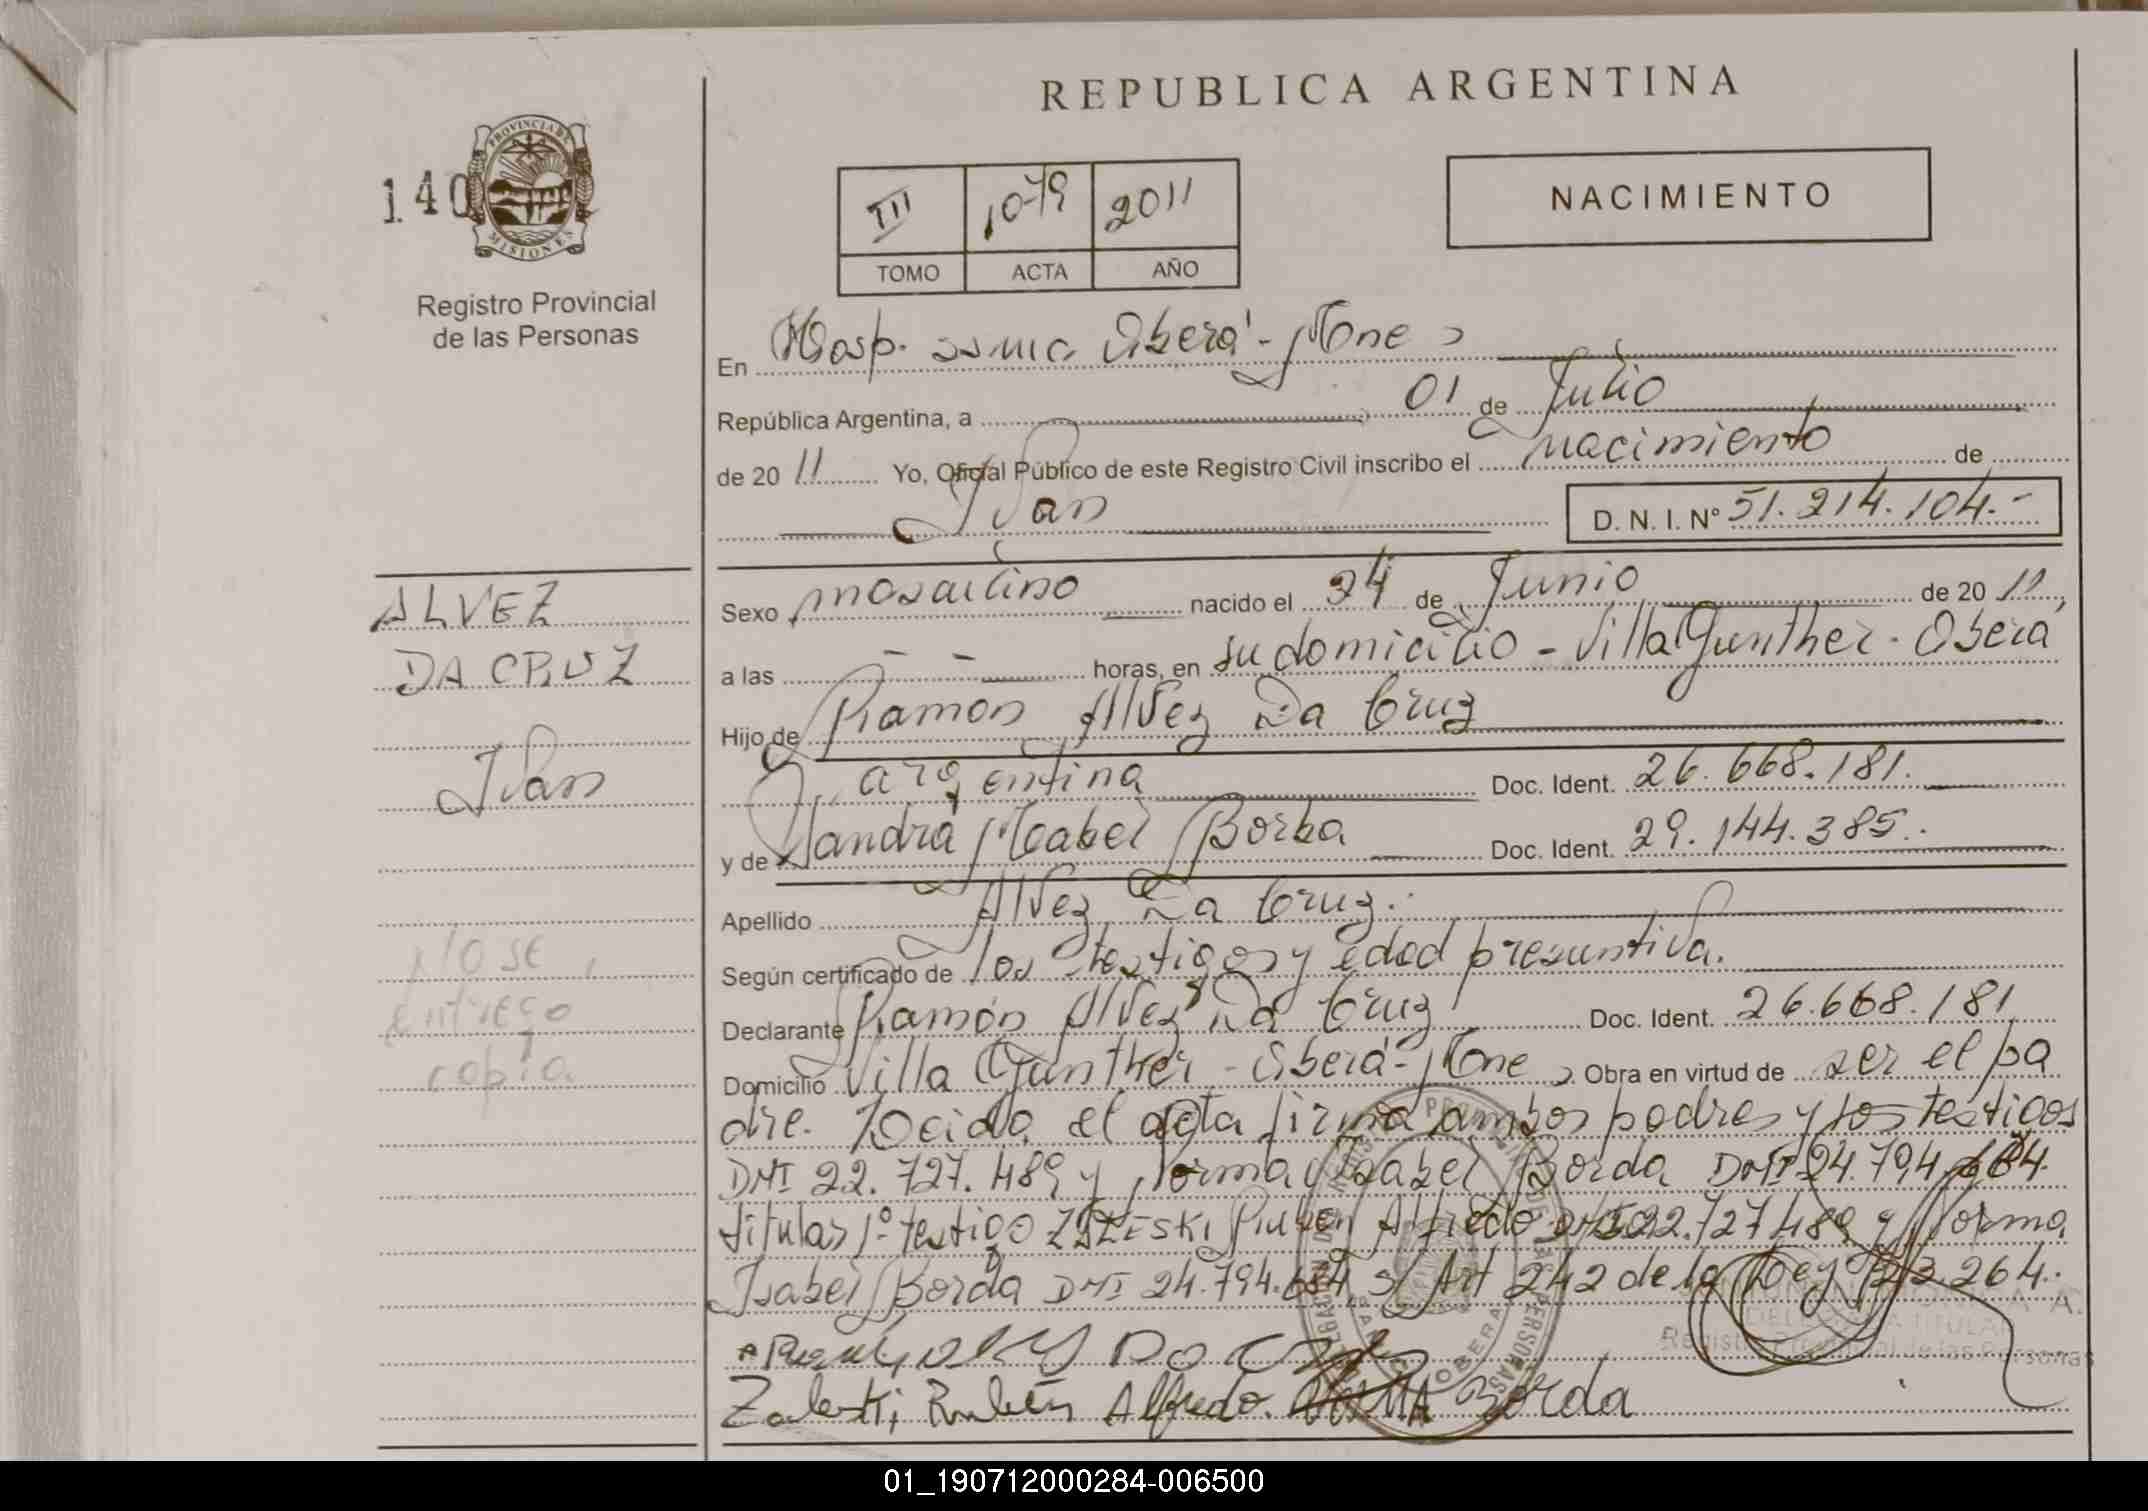 REPUBLICA ARGENTINA
140
PROVINCIA DE
MISIONES
Registro Provincial
de las Personas
III 1079 2011
TOMO ACTA AÑO
NACIMIENTO
En Hosp. Oberá - Mnes
República Argentina, a 01 de Julio
de 2011 Yo, Oficial Público de este Registro Civil inscribo el nacimiento de
Ivan
D. N. I. Nº 51.214.104.-
ALVEZ
DA CRUZ
Ivan
NO SE
entrego
copia
Sexo masculino nacido el 24 de Junio de 2011,
a las - - horas, en su domicilio - Villa Gunther - Oberá
Hijo de Ramon Alvez Da Cruz
argentina Doc. Ident. 26.668.181.
y de Sandra Mabel Borba Doc. Ident. 29.144.385.
Apellido Alvez Da Cruz.
Según certificado de los testigos y edad presuntiva.
Declarante Ramón Alvez Da Cruz Doc. Ident. 26.668.181
Domicilio Villa Gunther - Oberá - Mnes Obra en virtud de ser el pa
dre. Leida el acta firma ambos padres y los testigos
DNI 22.727.489 y Norma Isabel Borda DNI 24.794.684.
titular 1º testigo ZALESKI Ruben Alfredo DNI 22.727.489 y Norma
Isabel Borda DNI 24.794.684 s/ Art 242 de la Ley 23.264.
DELEGADA TITULAR
Registro Provincial de las Personas
Zaleski Rubén Alfredo. NORMA Borda
OBERA
01_190712000284-006500